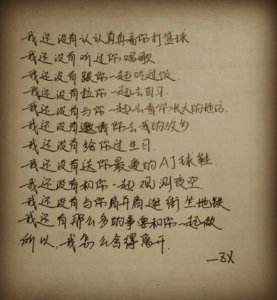 我还没有认认真真看你打篮球
我还没有听过你唱歌
我还没有跟你一起吃过饭
我还没有拉你一起去自习
我还没有与你一起去看你长大的地方
我还没有邀请你去我的故乡
我还没有给你过生日
我还没有送你最爱的AJ球鞋
我还没有和你一起观测夜空
我还没有与你肩并肩逛街坐地铁
我还有那么多的事要和你一起做
所以,我怎么舍得离开
—ZX